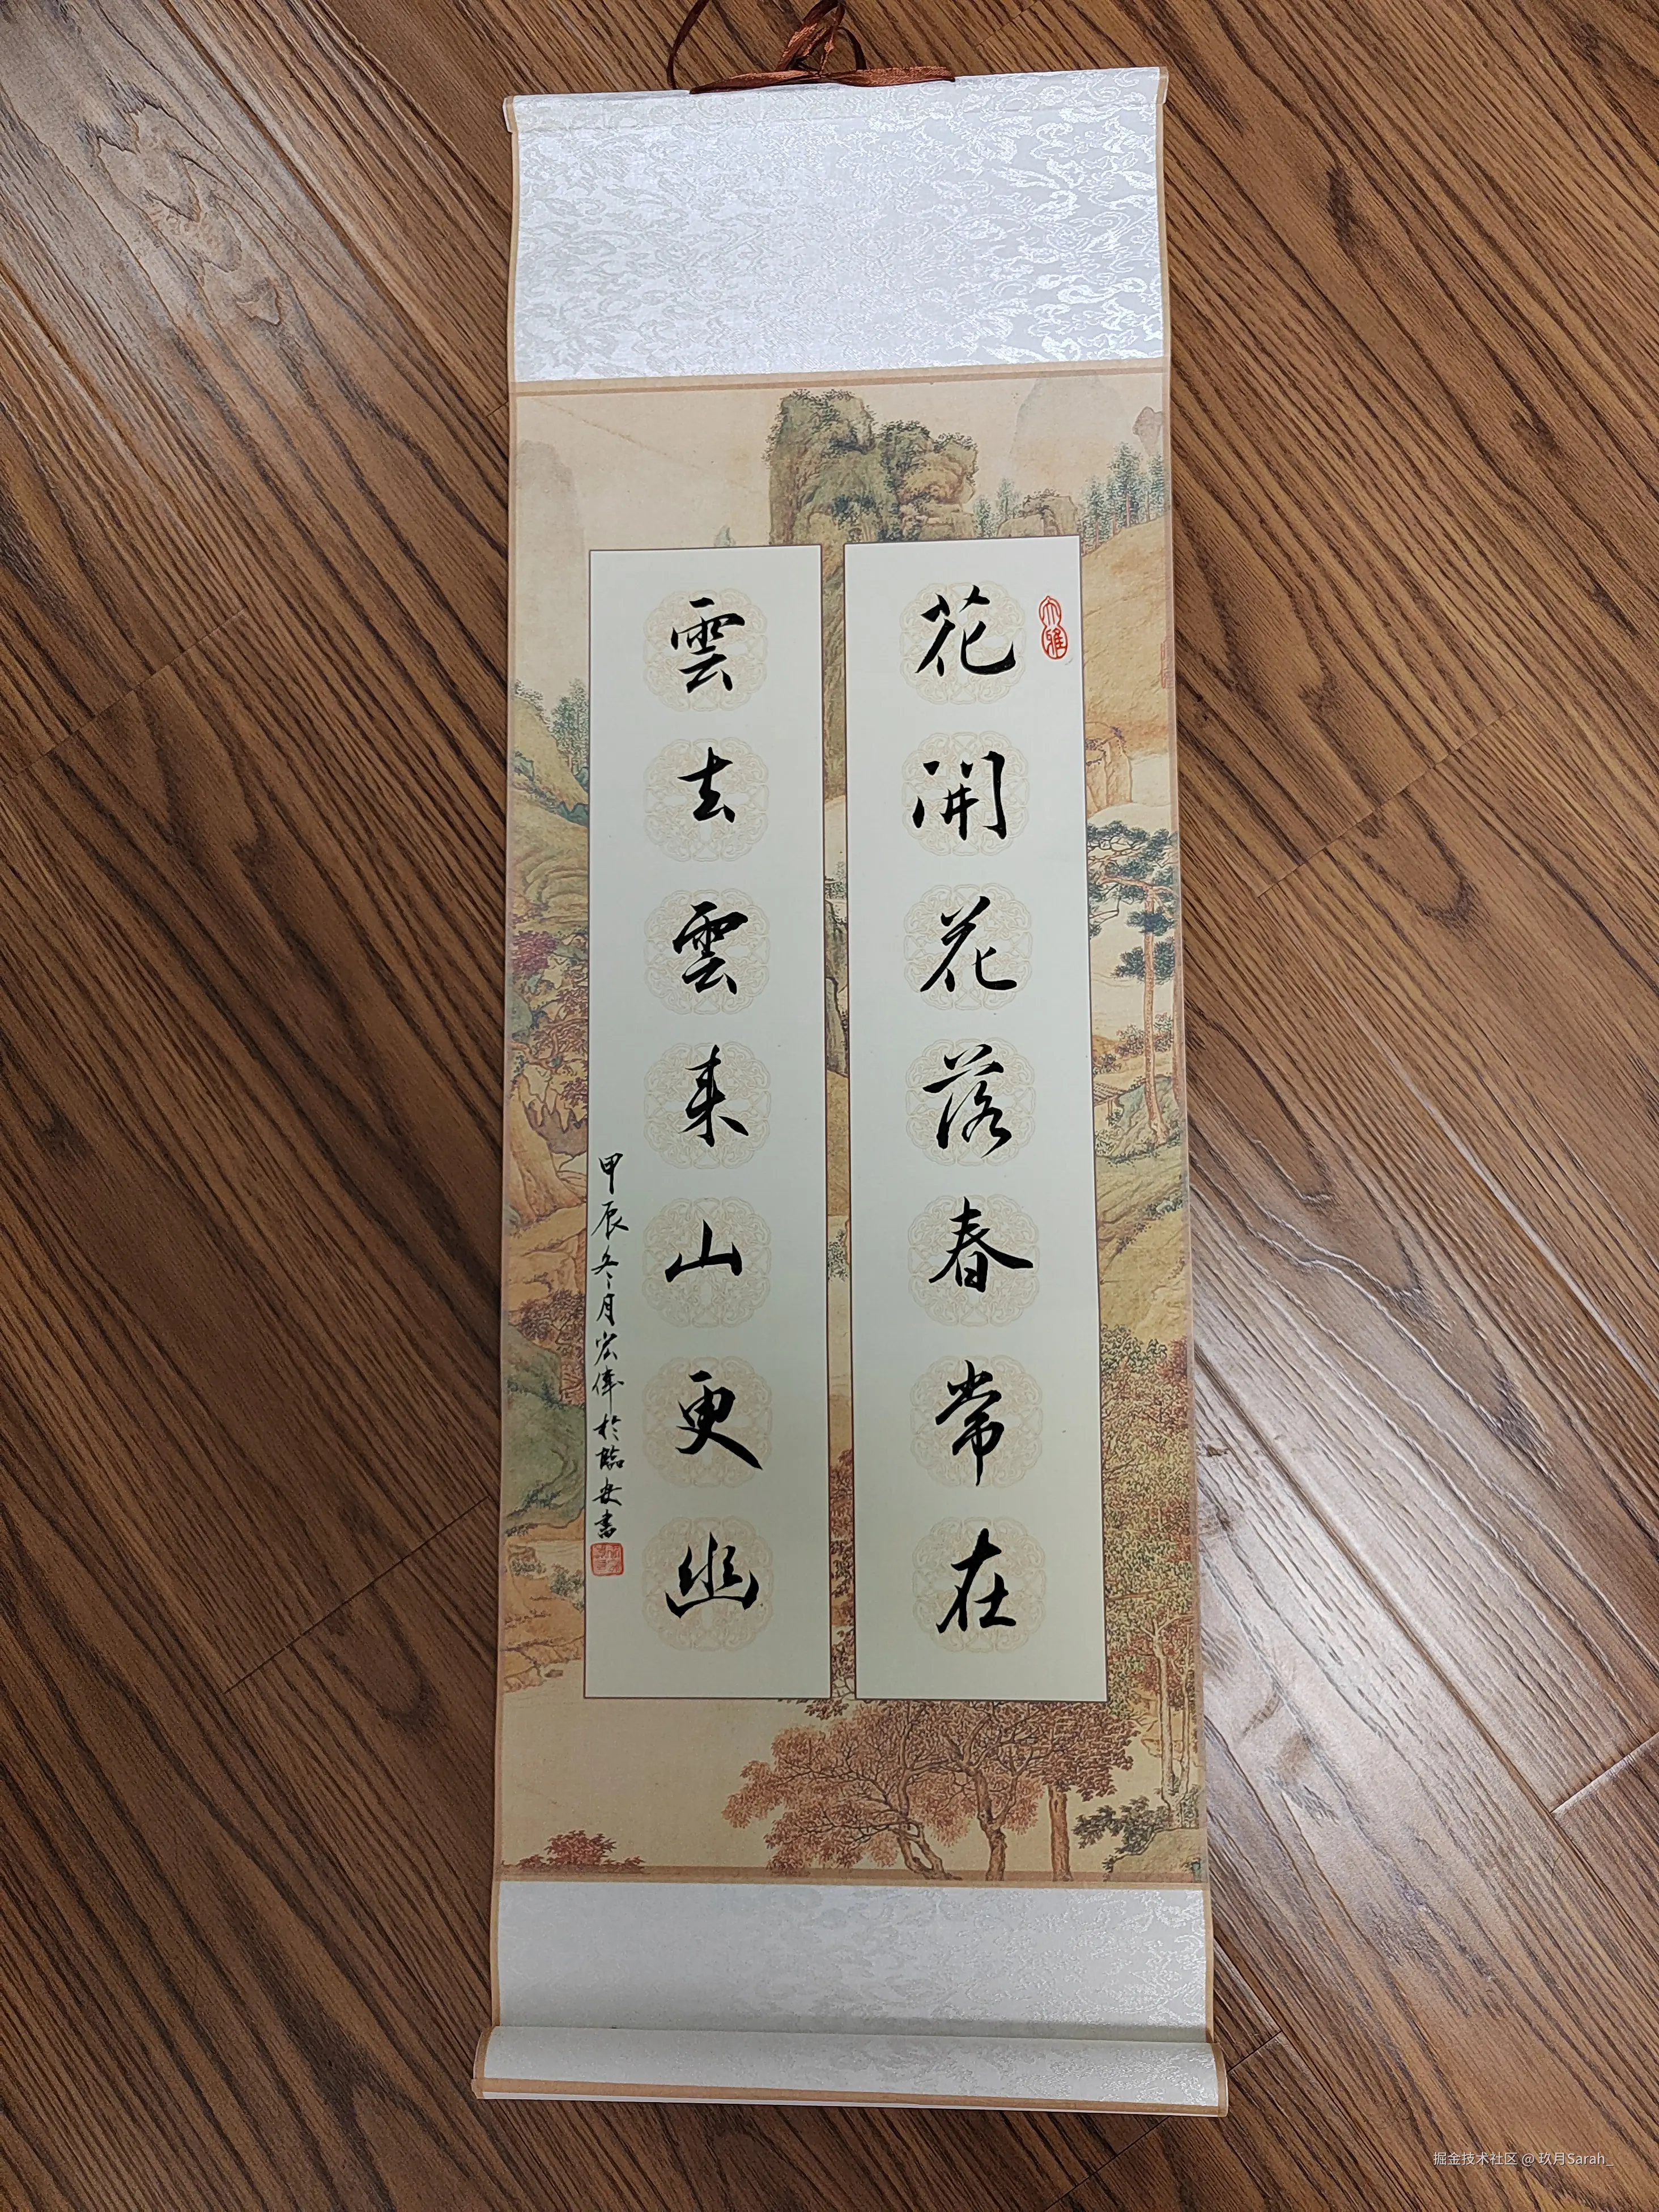 花開花落春常在
雲去雲来山更幽
甲辰冬月宏偉於臨安書
大雅
掘金技术社区 @ 玖月Sarah_